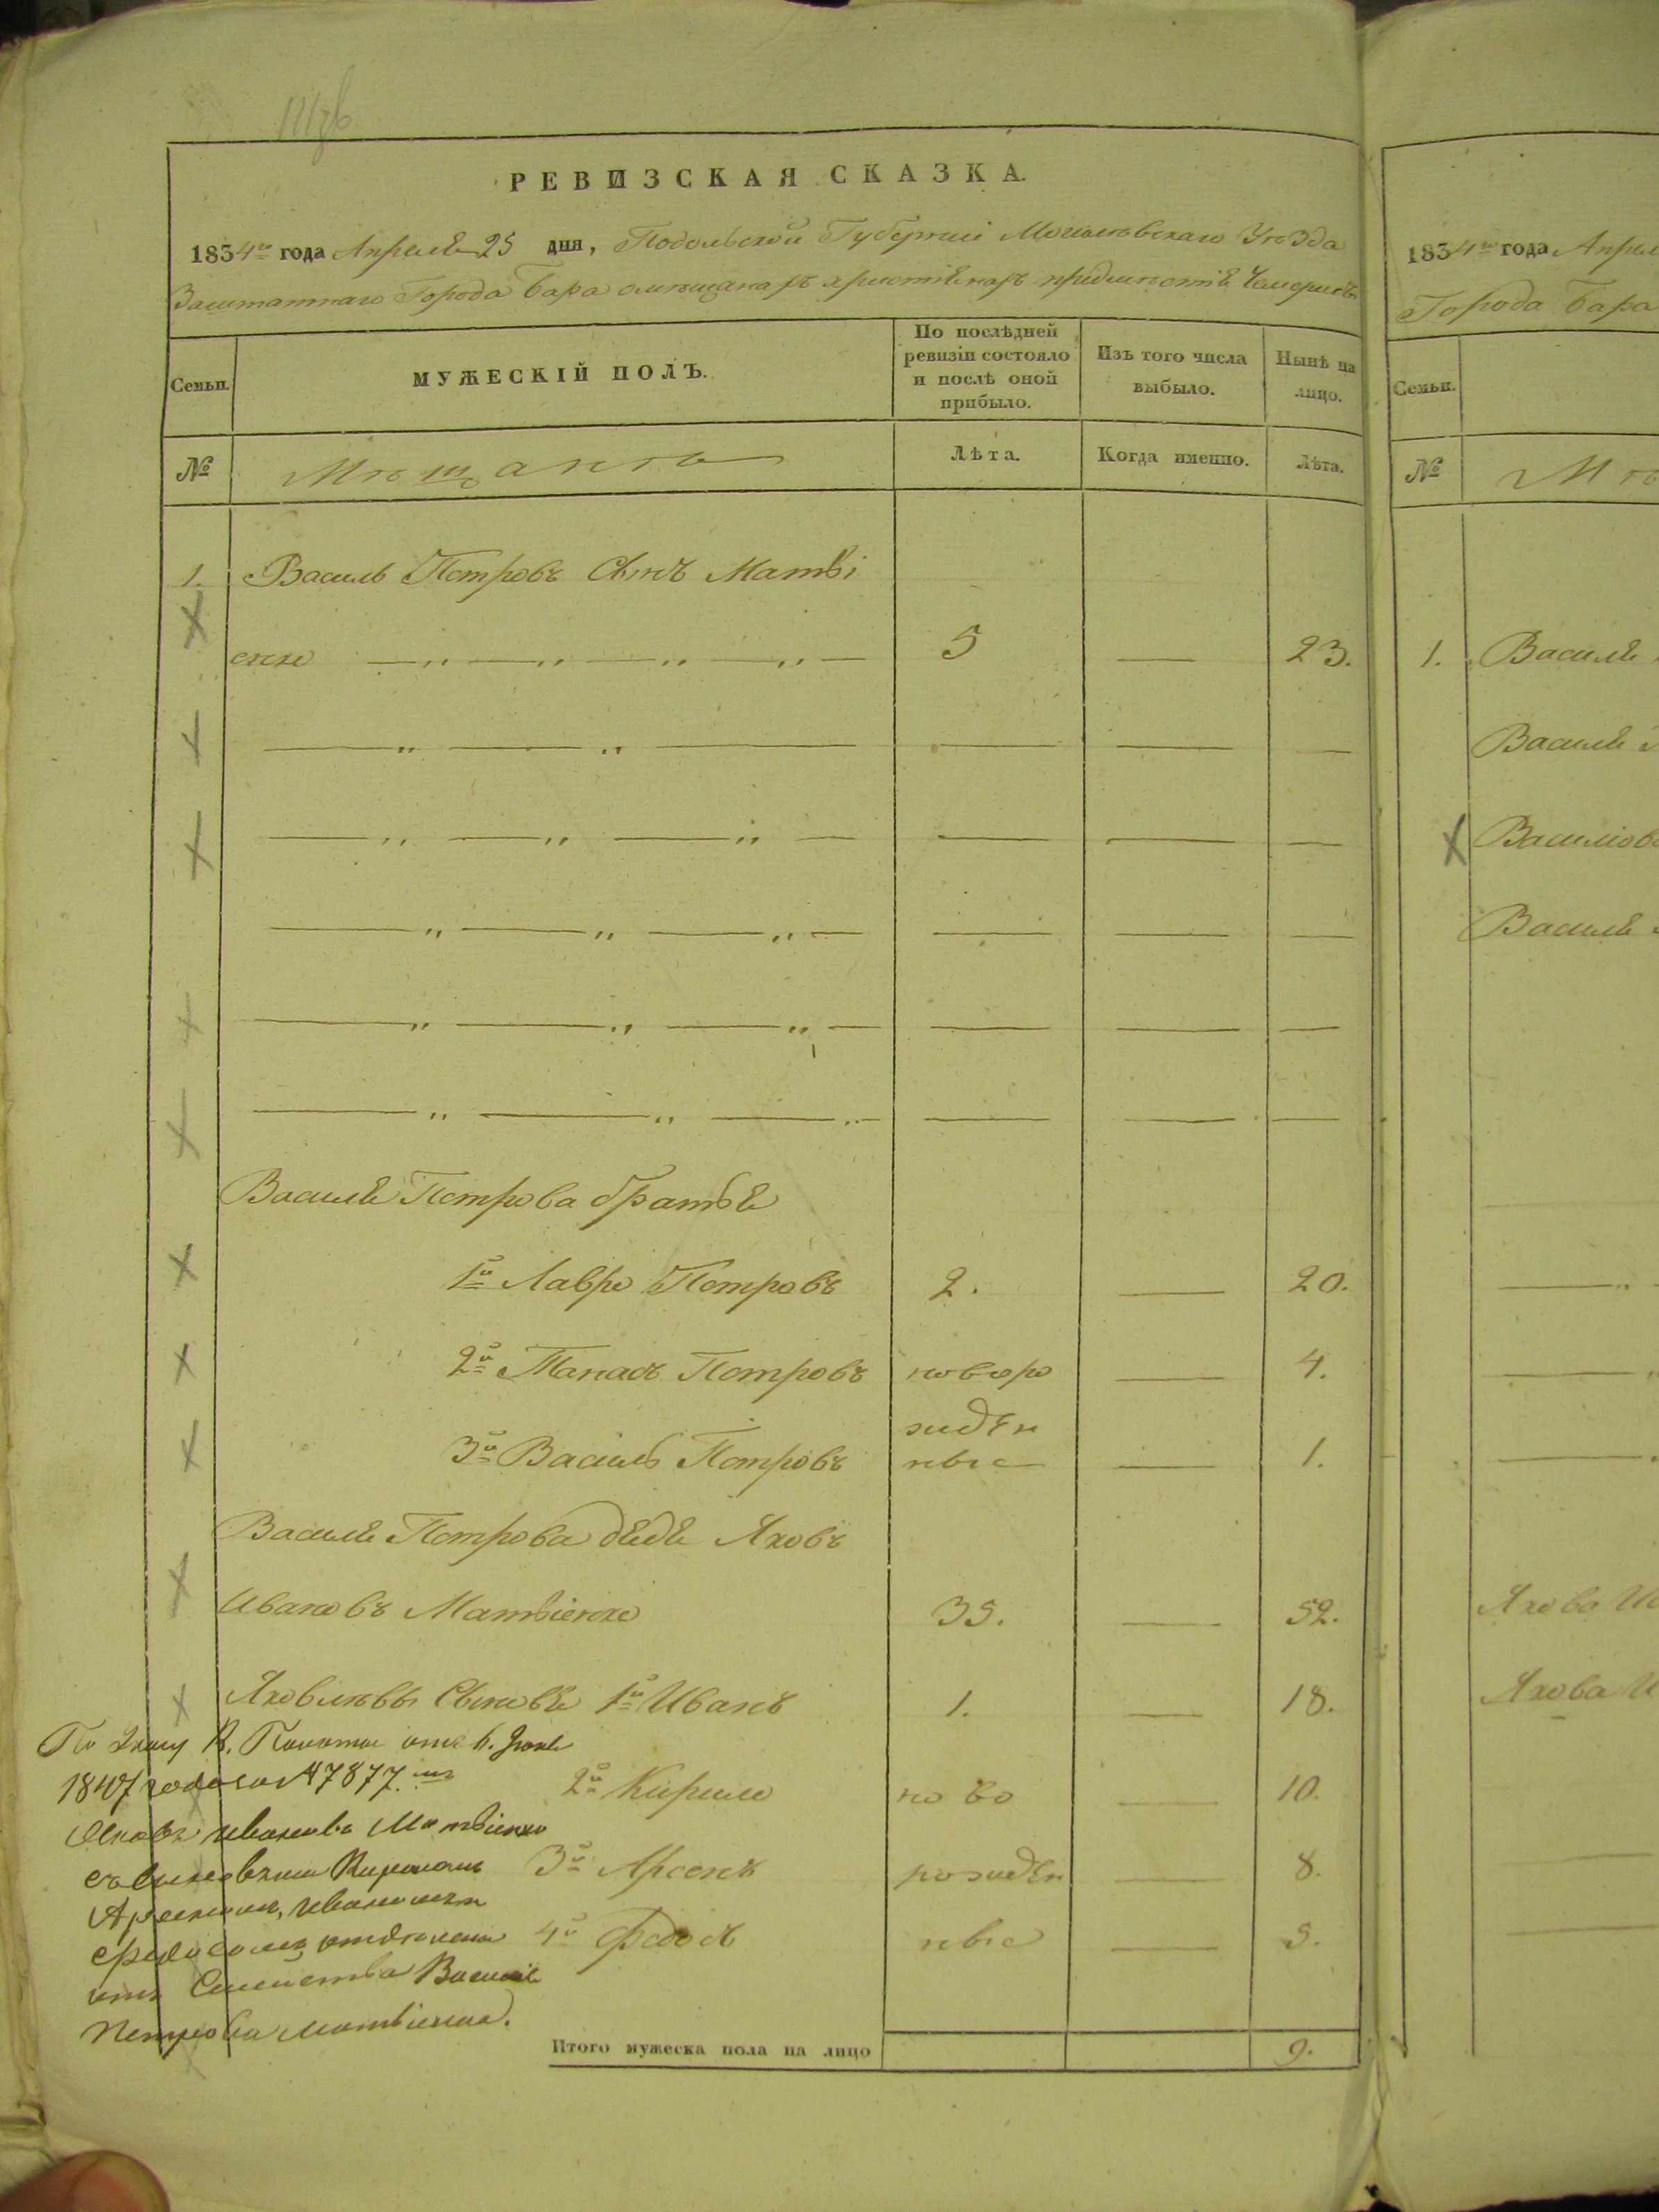 РЕВИЗСКАЯ СКАЗКА.
1834го года Апреля 25 дня, Подольской Губернии Могилевскаго Уѣзда
Заштатнаго Города Бара о мещанахъ христіянахъ предместія Чемерисъ
Семьи.
МУЖЕСКІЙ ПОЛЪ.
По послѣдней ревизіи состояло и послѣ оной прибыло.
Изъ того числа выбыло.
Нынѣ на лицо.
№
Мѣщанѣ
Лѣта.
Когда именно.
Лѣта.
1. Василь Петровъ Сынъ Матві
енко 5 — 23.
Василя Петрова братья
1й Лавро Петровъ 2. — 20.
2й Танасъ Петровъ новоро — 4.
жден
3й Василь Петровъ ные — 1.
Василя Петрова дядя Яковъ
Ивановъ Матвіенко 35. — 52.
Яковлѣвы Сыновья 1й Иванъ 1. — 18.
2й Кирило ново — 10.
3й Арсенъ рожден — 8.
4й Федосъ ные — 5.
По Указу К. Палаты отъ 6. Июня
1847 года за № 7877.мъ
Яковъ Ивановъ Матвіенко
съ Сыновьями Кириломъ
Арсеномъ, Иваномъ и
Федосомъ отделены
отъ Семейства Василя
Петрова Матвіенка.
Итого мужеска пола на лицо 9.
1834го года Апрел
Города Бара
Семьи.
№
Мѣ
1. Василя
Василя
Василіов
Василя
Якова Ив
Якова И